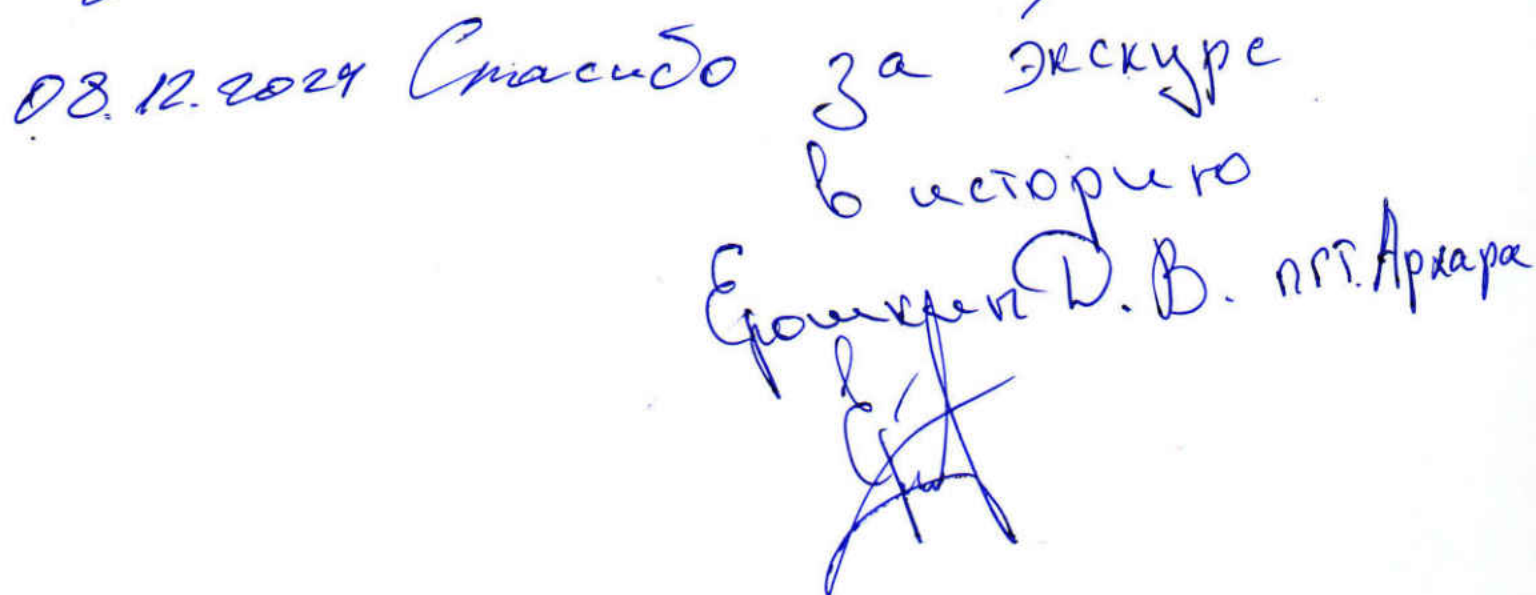 08.12.2024 Спасибо за экскурс
в историю
Ерошкин Д. В. пгт. Архара